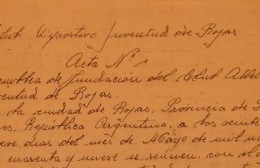 Club Deportivo Juventud de Rojas
Acta Nº 1
Asamblea de fundación del Club Atlé
ventud de Rojas.
la ciudad de Rojas, Provincia de
res, República Argentina, a los veinte
tres días del mes de Mayo de mil no
cuarenta y nueve se reunen con el